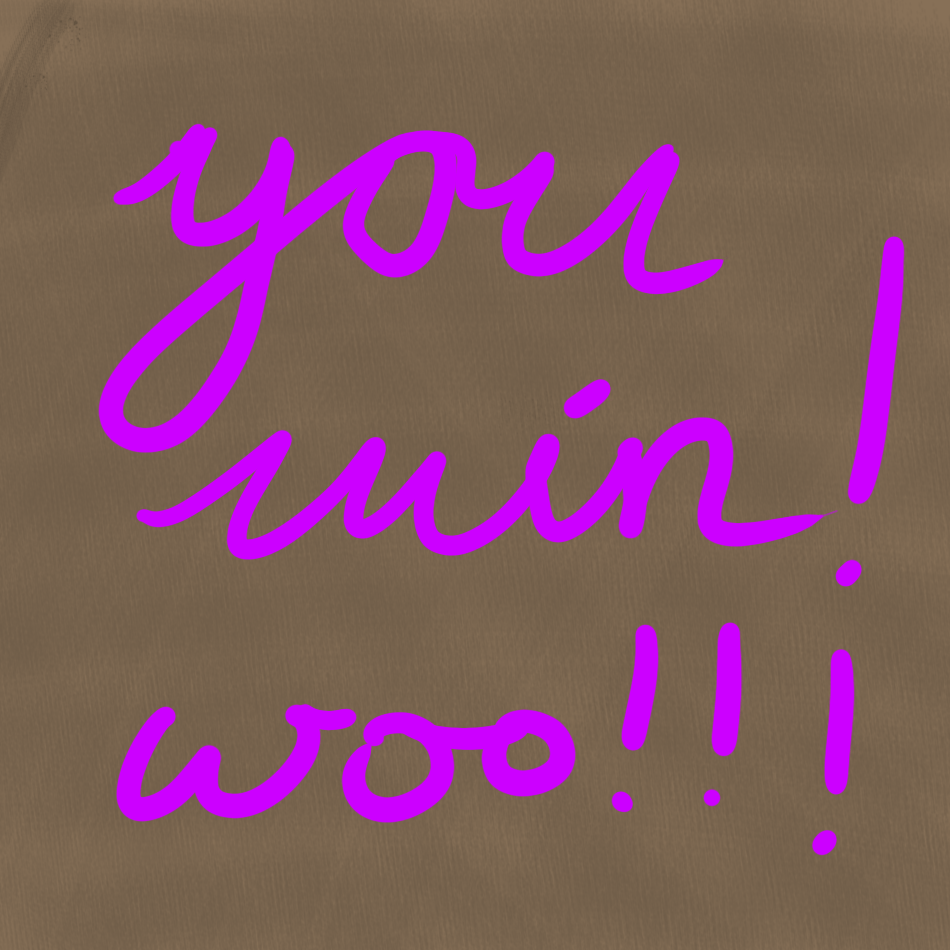 you
win!
woo!!!